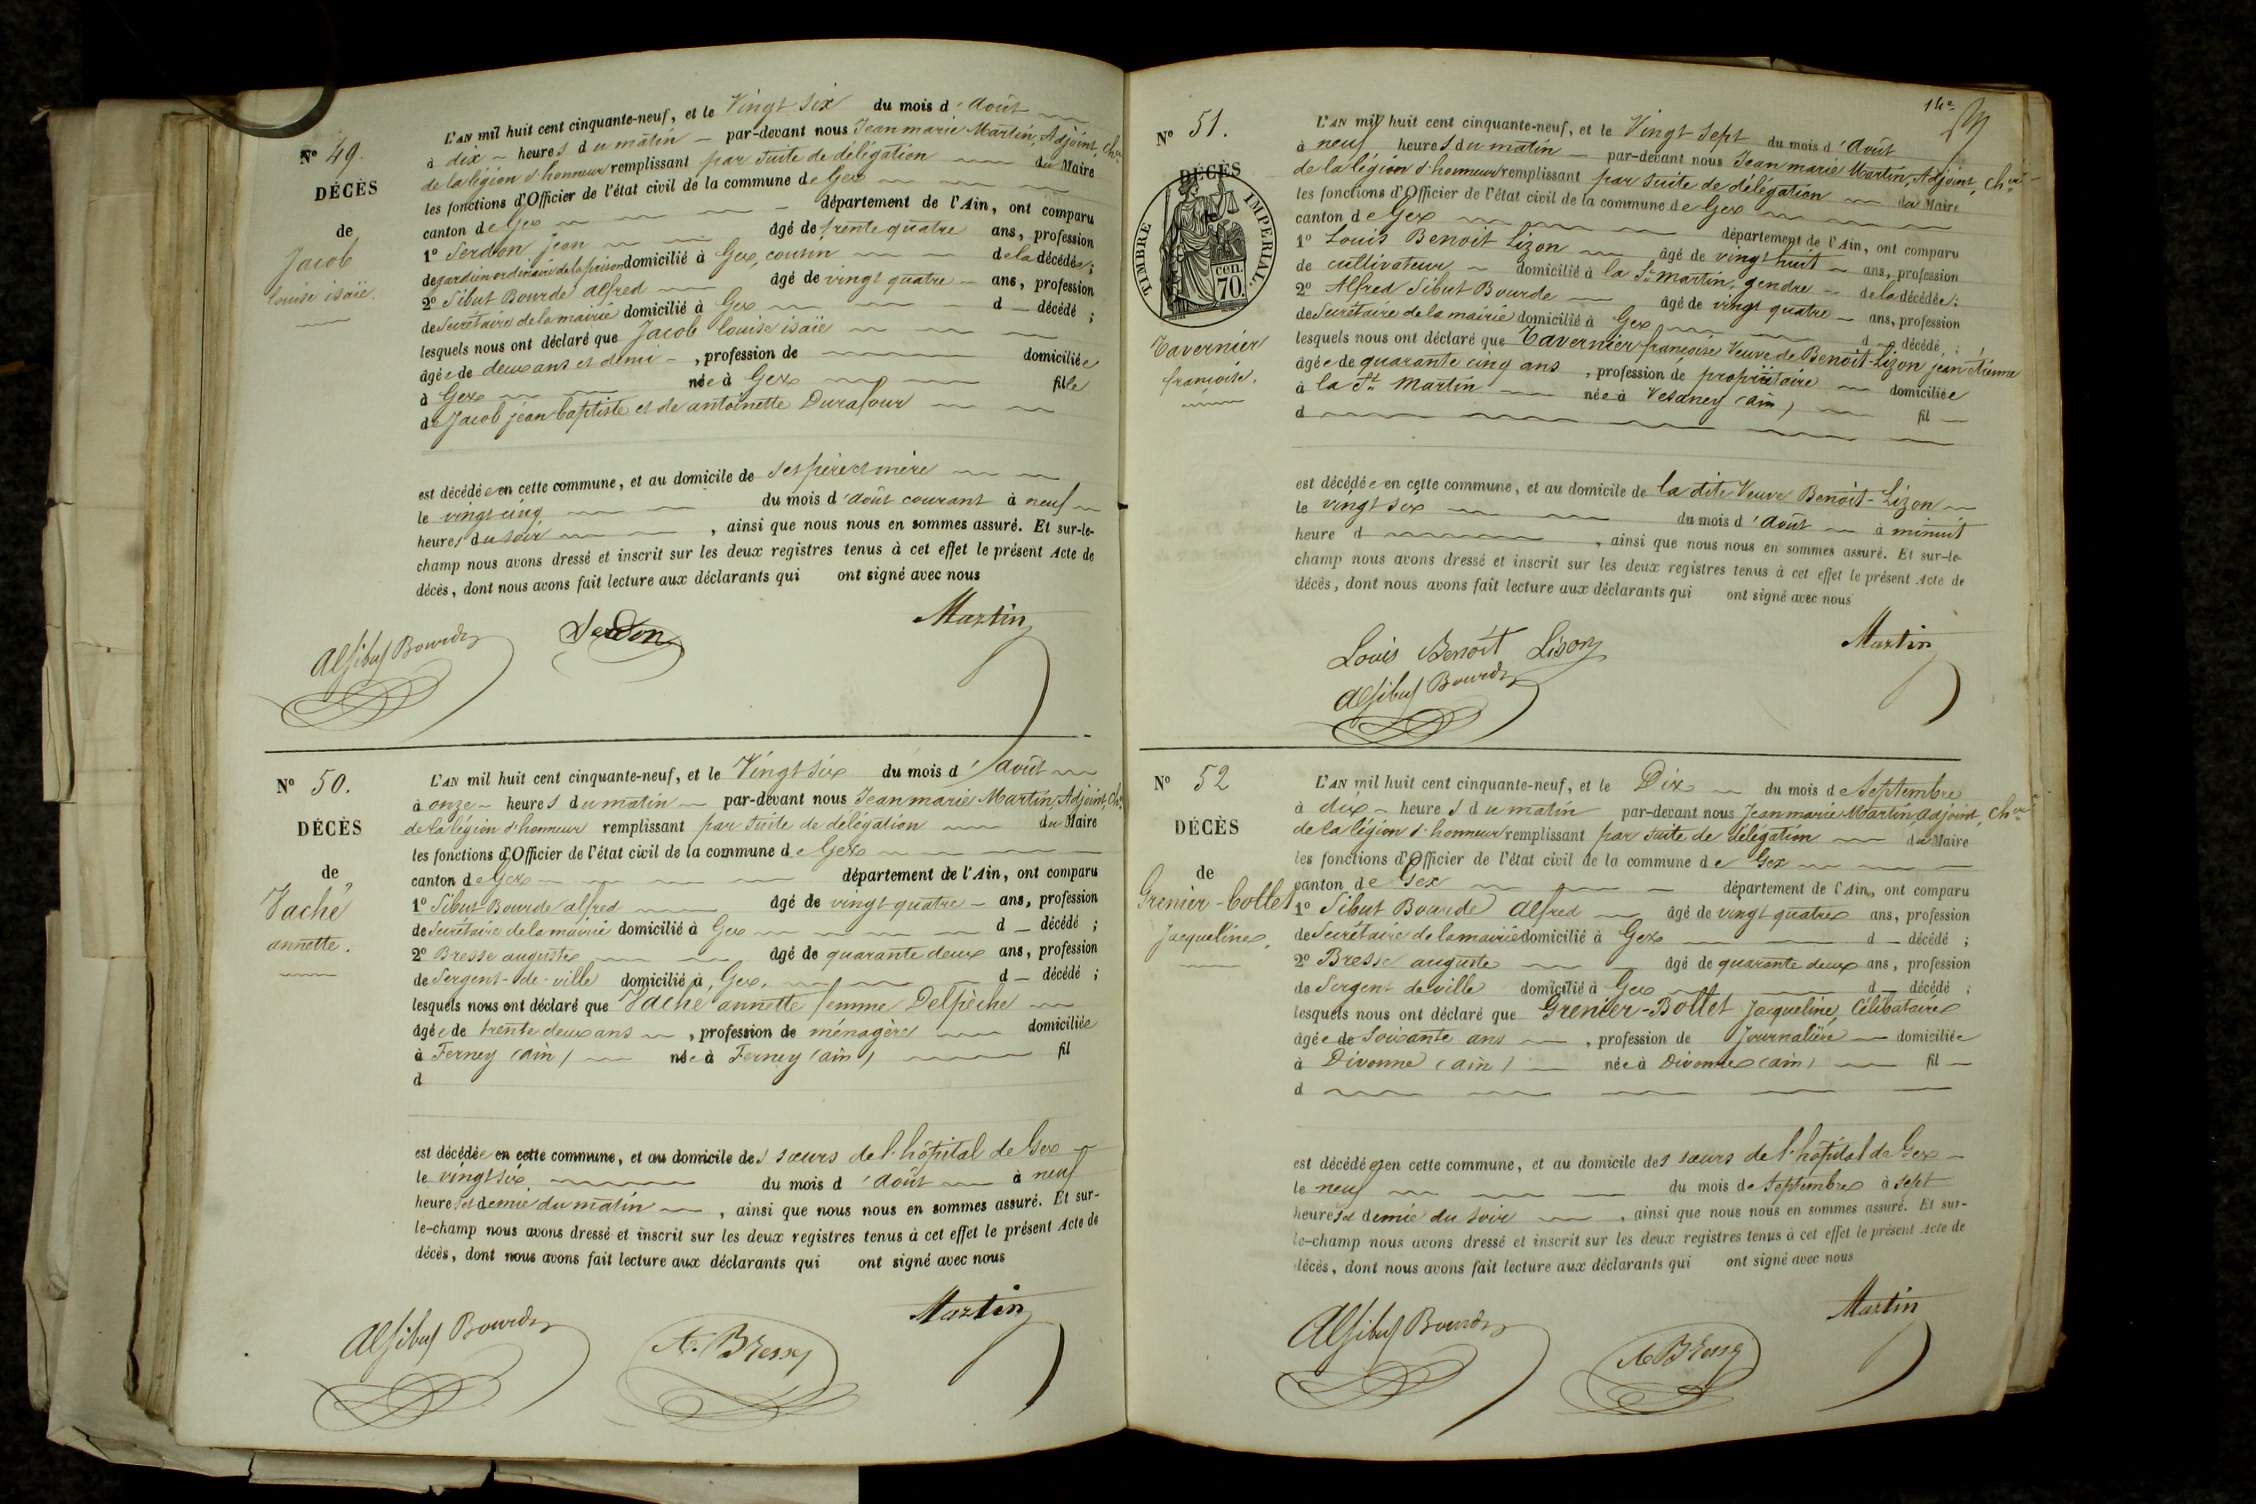 Nº 49.
DÉCÈS
de
Jacob
louise isaïe.
L'AN mil huit cent cinquante-neuf, et le Vingt six du mois d'août
à dix heures du matin par-devant nous Jean marie Martin, Adjoint, Cher
de la légion d'honneur remplissant par suite de délégation du Maire
les fonctions d'Officier de l'état civil de la commune de Gex
canton de Gex département de l'Ain, ont comparu
1º Serdon jean âgé de trente quatre ans, profession
de gardien ordinaire de la prison domicilié à Gex, cousin de la décédée;
2º Sibut Bourde alfred âgé de vingt quatre ans, profession
de Secrétaire de la mairie domicilié à Gex d décédé ;
lesquels nous ont déclaré que Jacob louise isaïe
âgée de deux ans et demi , profession de domiciliée
à Gex née à Gex fille
de Jacob jean baptiste et de antoinette Durafour
est décédée en cette commune, et au domicile de ses père et mère
le vingt cinq du mois d'août courant à neuf
heures du soir , ainsi que nous nous en sommes assuré. Et sur-le-
champ nous avons dressé et inscrit sur les deux registres tenus à cet effet le présent Acte de
décès, dont nous avons fait lecture aux déclarants qui ont signé avec nous
Alf Sibut Bourde Serdon Martin
Nº 50.
DÉCÈS
de
Vaché
annette.
L'AN mil huit cent cinquante-neuf, et le Vingt six du mois d'août
à onze heures du matin par-devant nous Jean marie Martin, Adjoint, Cher
de la légion d'honneur remplissant par suite de délégation du Maire
les fonctions d'Officier de l'état civil de la commune de Gex
canton de Gex département de l'Ain, ont comparu
1º Sibut Bourde alfred âgé de vingt quatre ans, profession
de Secrétaire de la mairie domicilié à Gex d décédé ;
2º Bresse auguste âgé de quarante deux ans, profession
de Sergent-de-ville domicilié à Gex. d décédé ;
lesquels nous ont déclaré que Vaché annette femme Delpèche
âgée de trente deux ans , profession de ménagère domiciliée
à Ferney (ain) née à Ferney (ain) fil
d
est décédée en cette commune, et au domicile des sœurs de l'hôpital de Gex
le vingt six du mois d'août à neuf
heures et demie du matin , ainsi que nous nous en sommes assuré. Et sur-
le-champ nous avons dressé et inscrit sur les deux registres tenus à cet effet le présent Acte de
décès, dont nous avons fait lecture aux déclarants qui ont signé avec nous
Alf Sibut Bourde A. Bresse Martin
14e
Nº 51.
DÉCÈS
de
TIMBRE IMPERIAL
cen.
70
Tavernier
françoise.
L'AN mil huit cent cinquante-neuf, et le Vingt sept du mois d'août
à neuf heures du matin par-devant nous Jean marie Martin, Adjoint, Cher
de la légion d'honneur remplissant par suite de délégation du Maire
les fonctions d'Officier de l'état civil de la commune de Gex
canton de Gex département de l'Ain, ont comparu
1º Louis Benoit Lizon âgé de vingt huit ans, profession
de cultivateur domicilié à la St. Martin, gendre de la décédée;
2º Alfred Sibut Bourde âgé de vingt quatre ans, profession
de Secrétaire de la mairie domicilié à Gex d décédé ;
lesquels nous ont déclaré que Tavernier françoise Veuve de Benoit-Lizon jean étienne
âgée de quarante cinq ans , profession de propriétaire domiciliée
à la St. Martin née à Vesancy (ain) fil
d
est décédée en cette commune, et au domicile de la dite Veuve Benoit-Lizon
le vingt six du mois d'août à minuit
heure d , ainsi que nous nous en sommes assuré. Et sur-le-
champ nous avons dressé et inscrit sur les deux registres tenus à cet effet le présent Acte de
décès, dont nous avons fait lecture aux déclarants qui ont signé avec nous
Louis Benoît Lison Martin
Alf Sibut Bourde
Nº 52
DÉCÈS
de
Grenier-Bollet
Jacqueline.
L'AN mil huit cent cinquante-neuf, et le Dix du mois de septembre
à dix heures du matin par-devant nous Jean marie Martin, adjoint, Cher
de la légion d'honneur remplissant par suite de délégation du Maire
les fonctions d'Officier de l'état civil de la commune de Gex
canton de Gex département de l'Ain, ont comparu
1º Sibut Bourde Alfred âgé de vingt quatre ans, profession
de Secrétaire de la mairie domicilié à Gex d décédé ;
2º Bresse auguste âgé de quarante deux ans, profession
de Sergent de ville domicilié à Gex d décédé ;
lesquels nous ont déclaré que Grenier-Bollet Jacqueline, Célibataire
âgée de Soixante ans , profession de Journalière domiciliée
à Divonne (ain) née à Divonne (ain) fil
d
est décédée en cette commune, et au domicile des sœurs de l'hôpital de Gex
le neuf du mois de septembre à sept
heures et demie du soir , ainsi que nous nous en sommes assuré. Et sur-
le-champ nous avons dressé et inscrit sur les deux registres tenus à cet effet le présent Acte de
décès, dont nous avons fait lecture aux déclarants qui ont signé avec nous
Alf Sibut Bourde A Bresse Martin